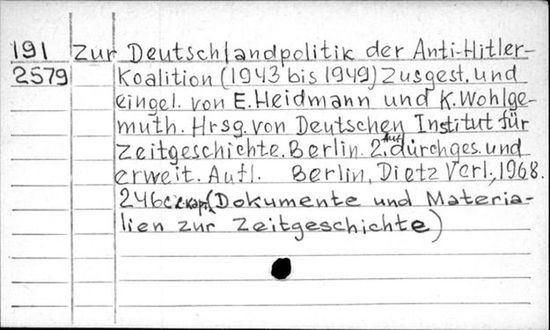 191 Zur Deutschlandpolitik der Anti-Hitler-
2579 Koalition (1943 bis 1949) Zusgest. und
eingel. von E. Heidmann und K. Wohlge-
muth. Hrsg. von Deutschen Institut für
Zeitgeschichte. Berlin. 2. Aufl. durchges. und
erweit. Aufl. Berlin, Dietz Verl., 1968.
246 c. (Dokumente und Materia-
lien zur Zeitgeschichte)